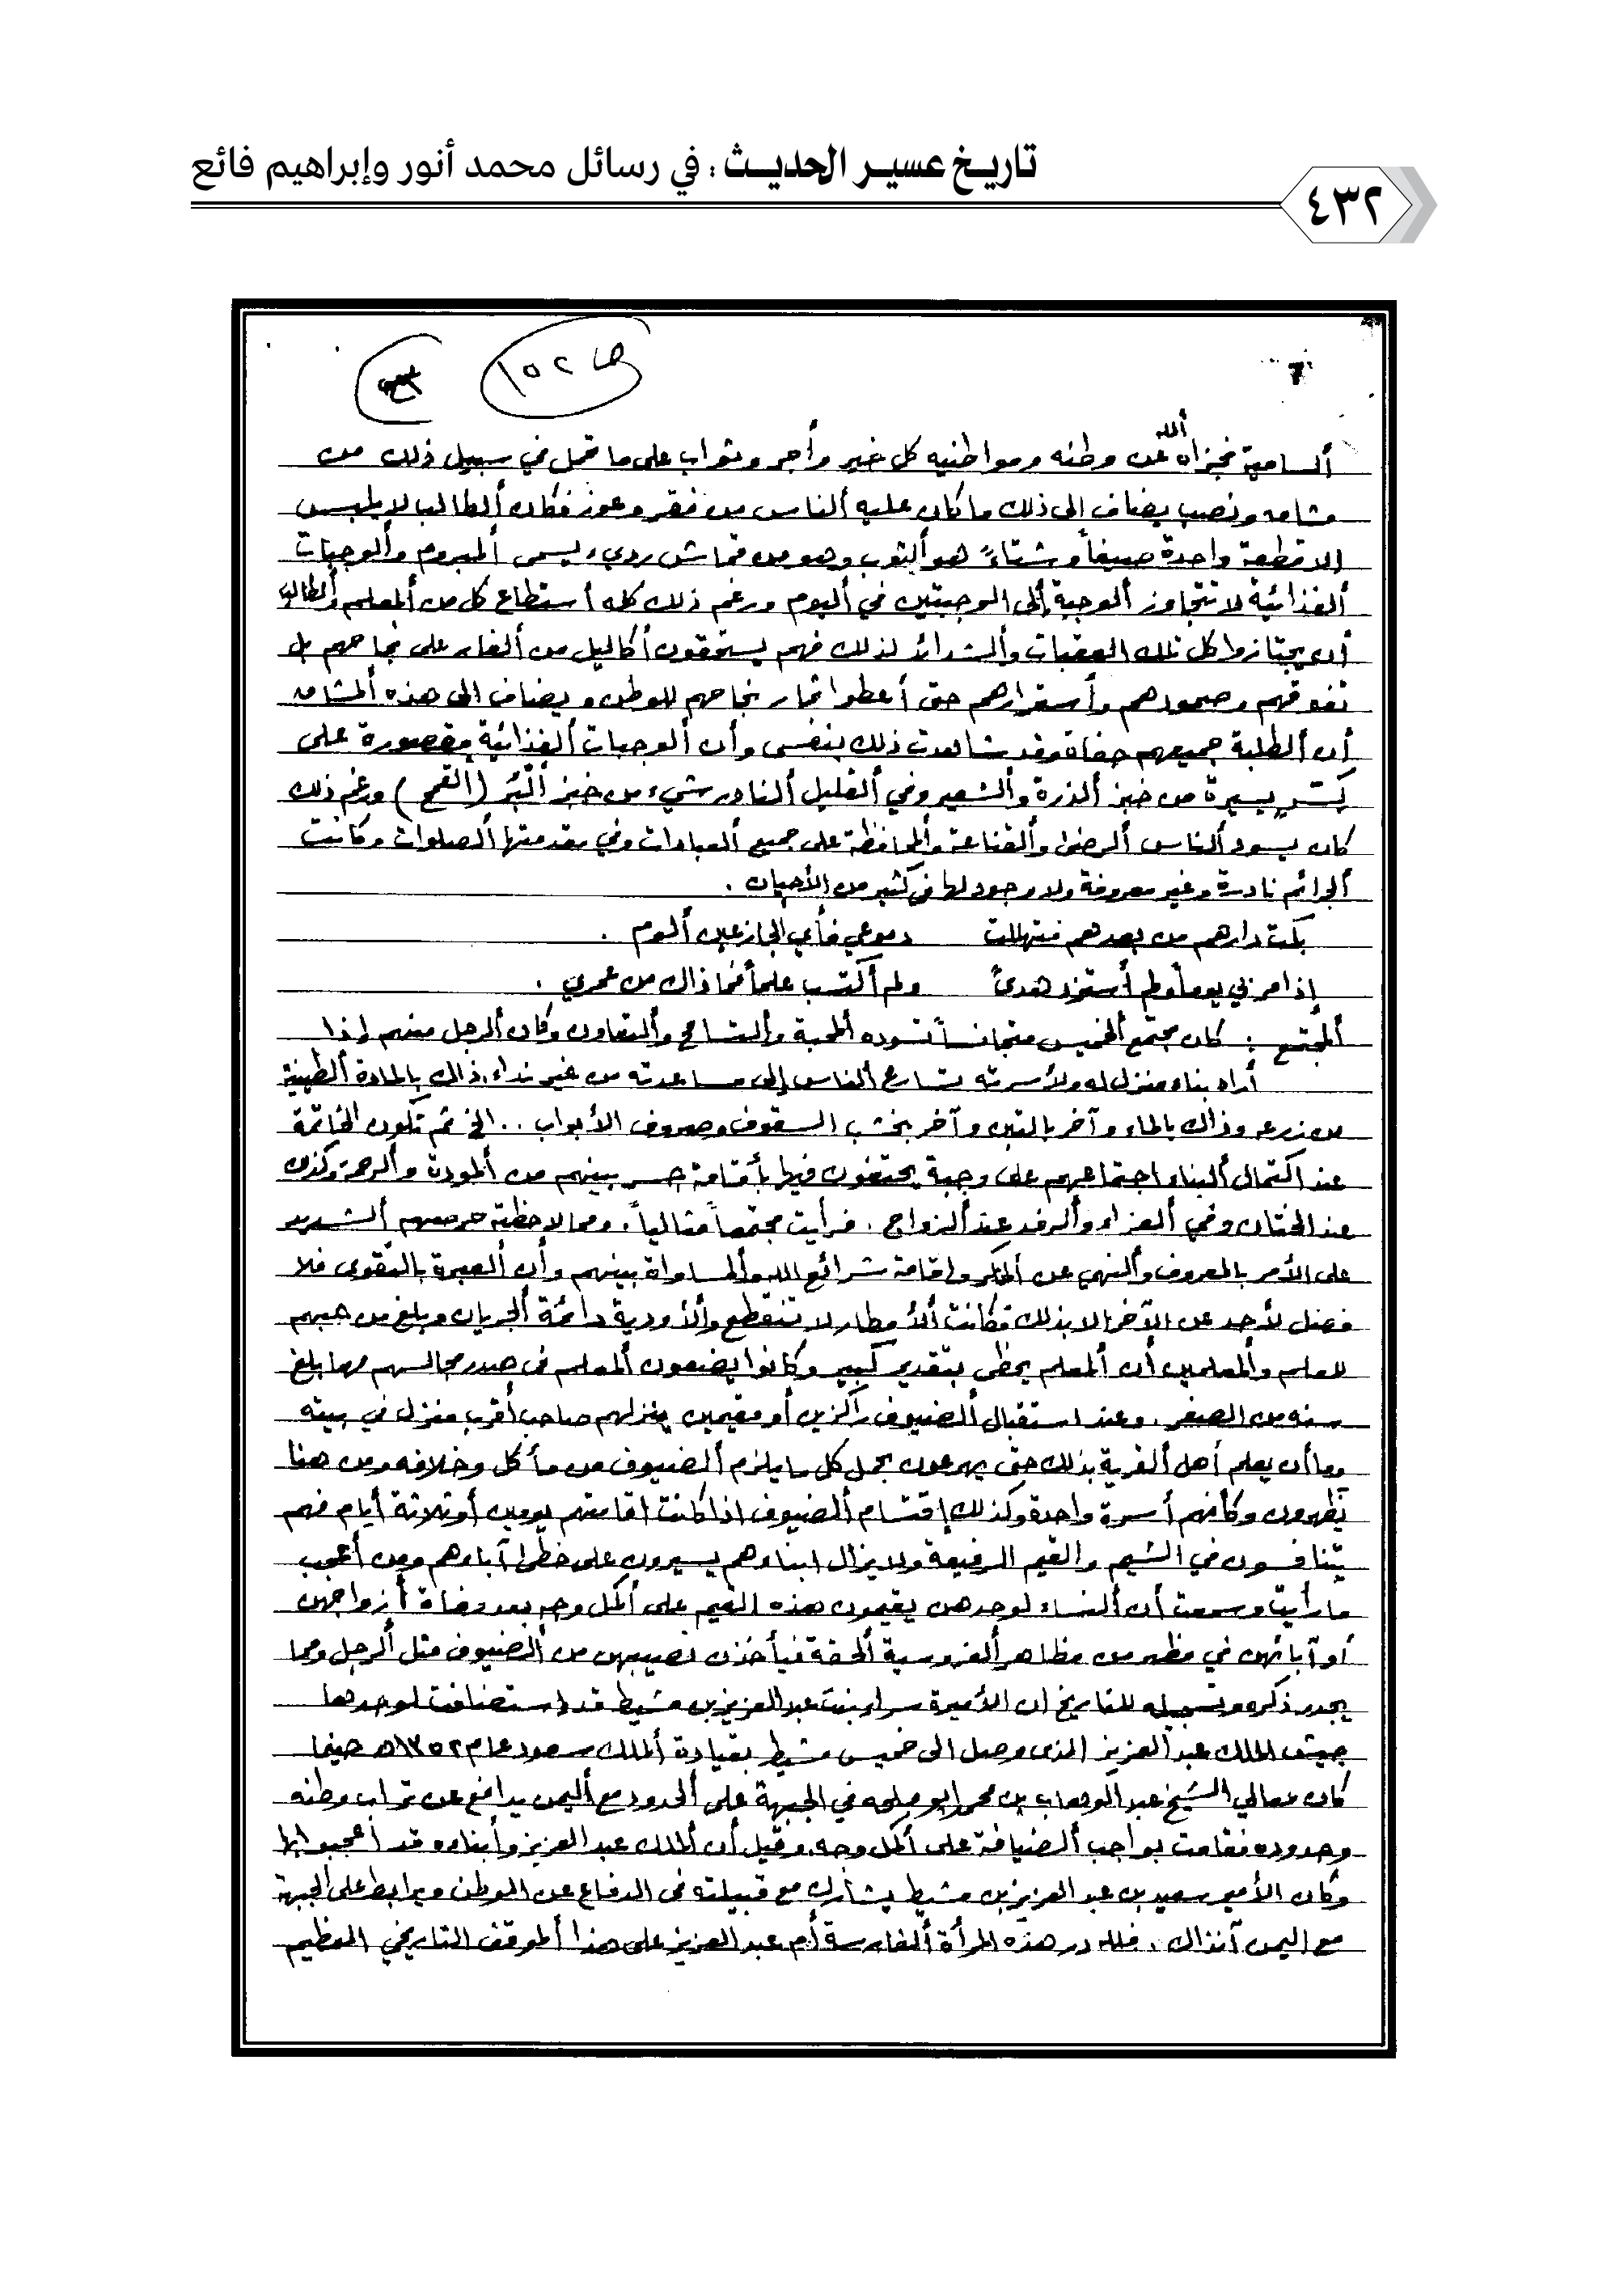 تاريخ عسير الحديث : في رسائل محمد أنور وإبراهيم فائع
٤٣٢
ص ١٥٢
7
ألله
ألسامية فجزاه عن وطنه ومواطنيه كل خير وأجر وثواب على ما تحمل في سبيل ذلك من
مشاق ونصب يضاف الى ذلك ما كان عليه ألناس من فقر وعوز فكان ألطالب لا يلبس
الا قطعة واحدة صيفاً وشتاءً هو ألثوب وهو من قماش رديء يسمى ألمبروم وألوجبات
ألغذائية لا تتجاوز ألوجبة إلى الوجبتين في أليوم ورغم ذلك كله أستطاع كل من ألمعلم وألطالب
أن يجتازوا كل تلك العقبات وألشدائد لذلك فهم يستحقون أكاليل من ألغار على نجاحهم بل
تفوقهم وصمودهم وأستقرارهم حتى أعطوا ثمار نجاحهم للوطن ويضاف الى هذه ألمشاق
أن ألطلبة جميعهم حفاة وقد شاهدت ذلك بنفسي وأن ألوجبات ألغذائية مقصورة على
كِسَرٍ يسيرة من خبز ألذرة وألشعير وفي ألقليل ألنادر شيء من خبز ألْبُر (القمح) ورغم ذلك
كان يسود ألناس ألرضى وألقناعة وألمحافظة على جميع ألعبادات وفي مقدمتها ألصلوات وكانت
ألجرائم نادرة وغير معروفة ولا وجود لها في كثير من الأحيان .
بكت دارهم من بعدهم فتهللت دموعي فأي الجازعين ألوم .
إذا مر بي يوماً ولم أستزد هدىً ولم أكتسب علماً فما ذاك من عمري .
ألمجتمع : كان مجتمع ألخميس متجانساً تسوده ألمحبة وألتسامح وألتعاون وكان ألرجل منهم إذا
أراد بناء منزل له ولأسرته تسارع ألناس إلى مساعدته من غير نداء. ذاك بالمادة ألطينية
من زرعه وذاك بالماء وآخر بالتبن وآخر بخشب السقوف وصروف الأبواب .. الخ ثم تكون الخاتمة
عند اكتمال ألبناء اجتماعهم على وجبة يحتفون فيها بأقامة جسر بينهم من ألمودة وألرحمة وكذلك
عند الختان وفي ألعزاء وألرفد عند ألزواج . فرأيت مجتمعاً مثالياً . ومما لاحظته حرصهم ألشديد
على الأمر بالمعروف وألنهي عن ألمنكر وإقامة شرائع الله وألمساواة بينهم وأن ألعبرة بالتقوى فلا
فضل لأحد عن الآخر الا بذلك فكانت ألأمطار لا تنقطع وألأودية دائمة ألجريان وبلغ من حبهم
للعلم وألمعلمين أن ألمعلم يحظى بتقدير كبير وكانوا يضعون ألمعلم في صدر مجالسهم مهما بلغ
سنه من الصغر . وعند استقبال ألضيوف راكزين أو مقيمين ينزلهم صاحب أقرب منزل في بيته
وما أن يعلم أهل ألقرية بذلك حتى يهرعون بحمل كل ما يلزم ألضيوف من مأكل وخلافه ومن هنا
يظهرون وكأنهم أسرة واحدة وكذلك إقتسام ألضيوف اذا كانت اقامتهم يومين أو ثلاثة أيام فهم
يتنافسون في الشيم والقيم الرفيعة ولا يزال ابناؤهم يسيرون على خطى آباءهم ومن أعجب
ما رأيت وسمعت أن ألنساء لوحدهن يقيمون هذه القيم على أكمل وجه بعد وفاة أزواجهن
أو آبائهن في مظهر من مظاهر ألفروسية ألحقة فيأخذن نصيبهن من ألضيوف مثل ألرجل ومما
يجدر ذكره وتسجيله للتاريخ ان الأميرة سراء بنت عبد العزيز بن مشيط قد إستضافت لوحدها
جيش الملك عبد ألعزيز الذى وصل الى خميس مشيط بقيادة ألملك سعود عام ١٣٥٢هـ حينما
كان معالي الشيخ عبد الوهاب بن محمد ابو ملحه في الجبهة على ألحدود مع أليمن يدافع عن تراب وطنه
وحدوده فقامت بواجب ألضيافة على أكمل وجه. وقيل أن ألملك عبد العزيز وأبناءه قد أعجبوا بها
وكان الأمير سعيد بن عبد العزيز بن مشيط يشارك مع قبيلته في الدفاع عن الوطن ويرابط على ألجبهة
مع اليمن آنذاك . فلله در هذه المرأة ألفارسة أم عبد العزيز على هذا ألموقف التاريخي العظيم